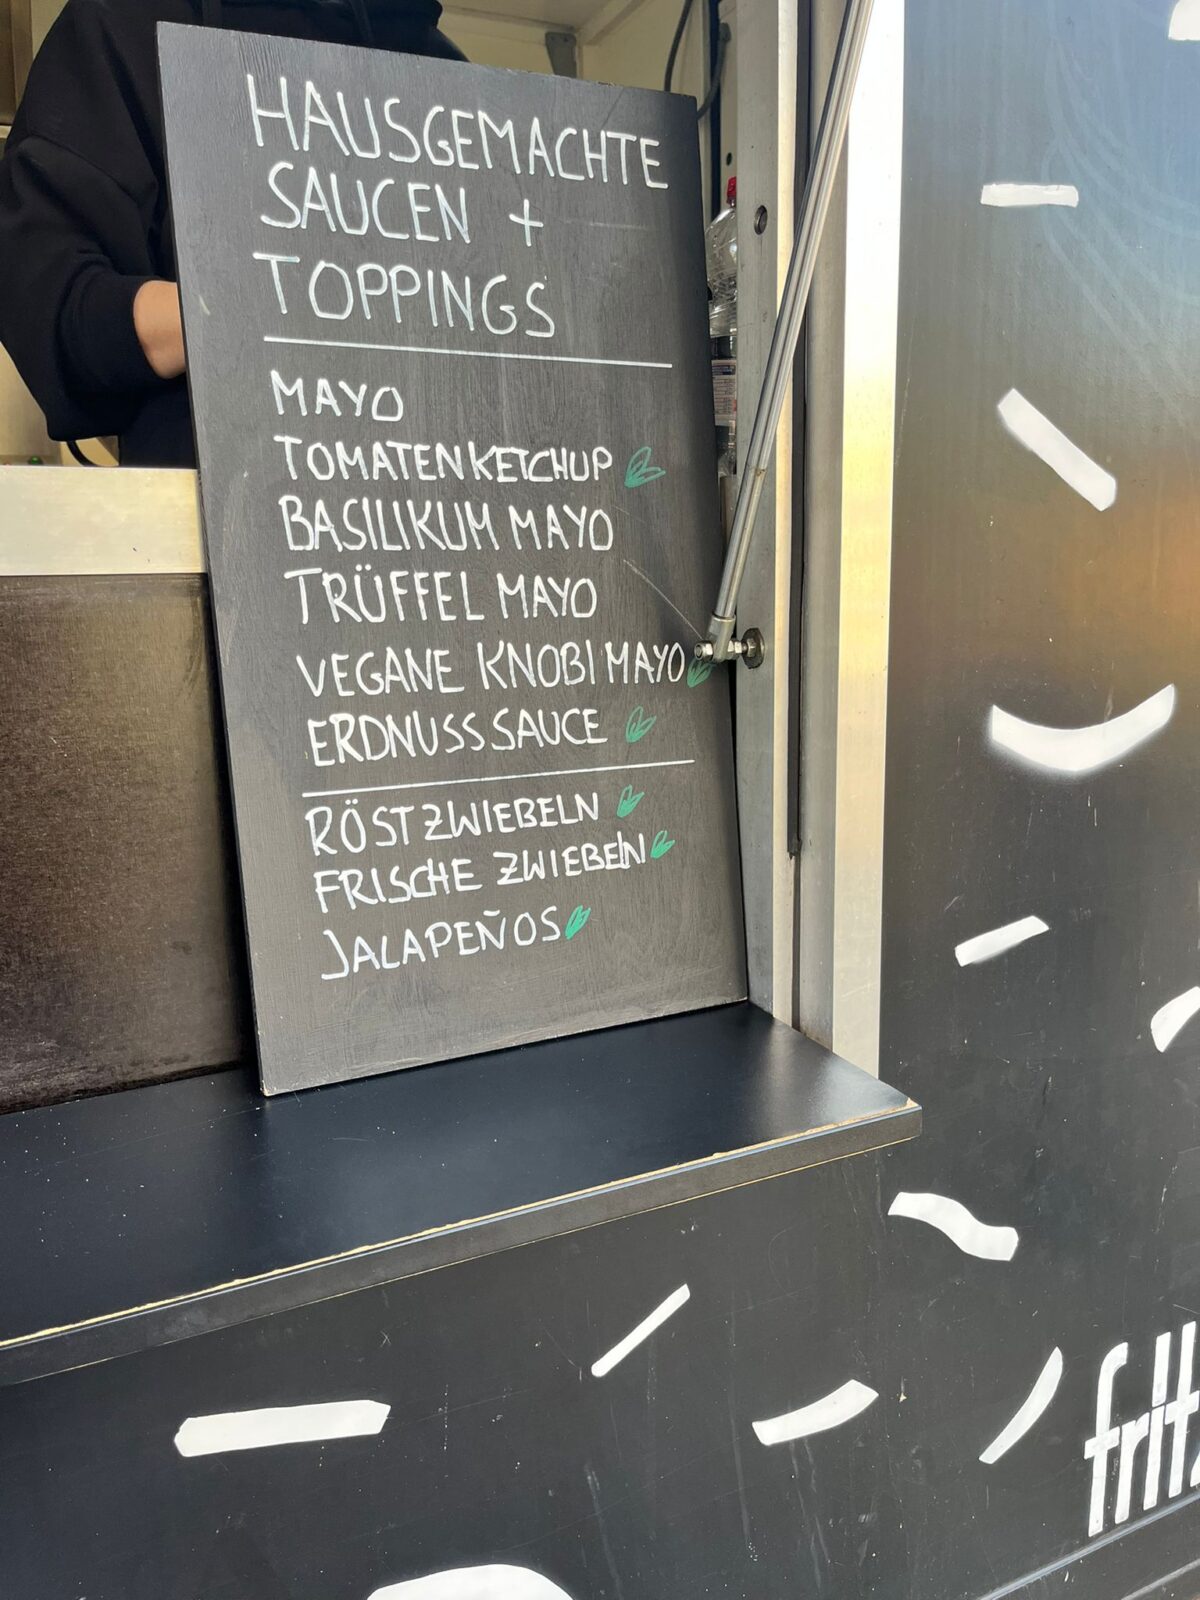 HAUSGEMACHTE
SAUCEN +
TOPPINGS
MAYO
TOMATENKETCHUP
BASILIKUM MAYO
TRÜFFEL MAYO
VEGANE KNOBI MAYO
ERDNUSSSAUCE
RÖSTZWIEBELN
FRISCHE ZWIEBELN
JALAPEÑOS